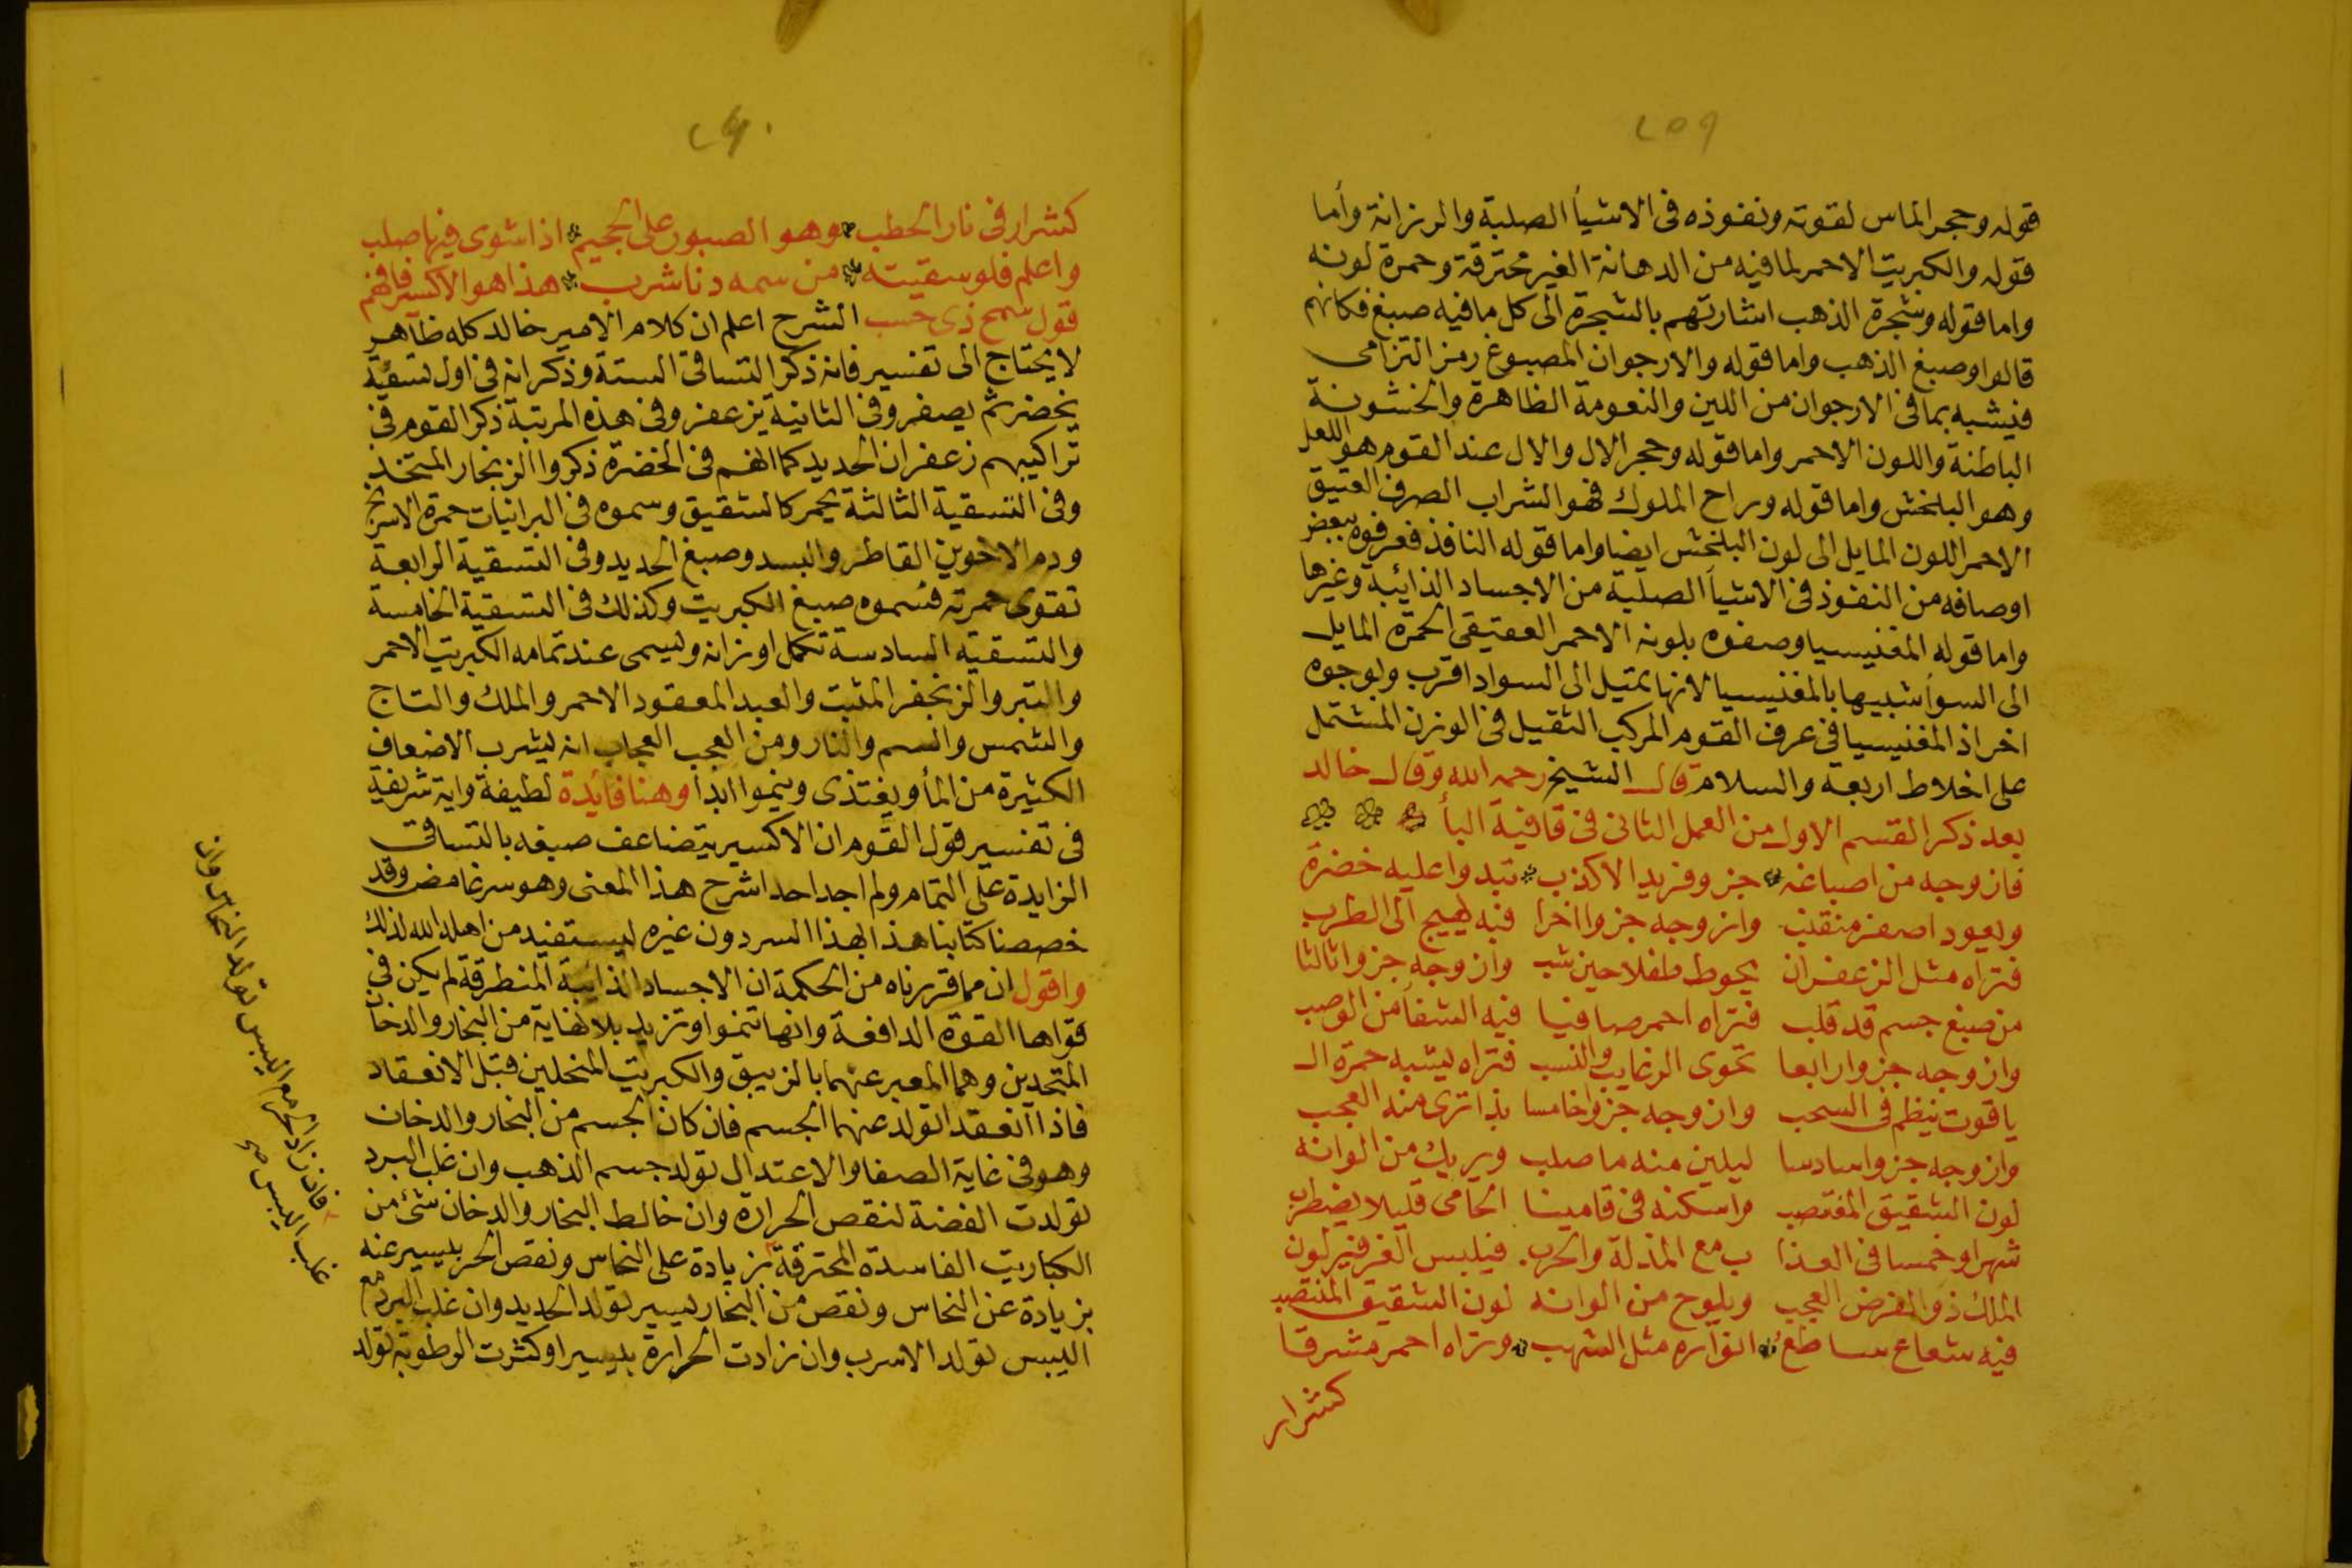 ٢٥٩
قوله وحجر الماس لقوته ونفوذه في الاشيأ الصلبة والرزانة وأما
قوله والكبريت الاحمر لما فيه من الدهانة الغير محترقة وحمرة لونه
واما قوله وشجرة الذهب اشارتهم بالشجرة الى كل ما فيه صبغ فكانهم
قالوا وصبغ الذهب واما قوله والارجوان المصبوغ رمز التزامى
فيشبه بما في الارجوان من اللين والنعومة الظاهرة والخشونة
الباطنة واللون الاحمر واما قوله وحجر الال والال عند القوم هو اللعل
وهو البلخش واما قوله وراح الملوك فهو الشراب الصرف العتيق
الاحمر اللون المايل الى لون البلخش ايضا واما قوله النافذ فعرفوه ببعض
اوصافه من النفوذ في الاشيأ الصلبة من الاجساد الذائبة وغيرها
واما قوله المغنيسيا وصفوه بلونه الاحمر العقيقى الحمرة المايل
الى السواد شبيها بالمغنيسيا لانها تميل الى السواد اقرب ولوجوه
اخر اذ المغنيسيا في عرف القوم المركب الثقيل في الوزن المشتمل
على اخلاط اربعه والسلام قال الشيخ رحمه الله وقال خالد
بعد ذكر القسم الاول من العمل الثانى في قافية البأ
فازوجه من اصباغه جزو فريد الاكذب تبدوا عليه خضرة
ويعود اصفر منقلب وازوجه جزوا اخرا فبه يهيج الى الطرب
فتراه مثل الزعفران يحوط طفلا حين شب وازوجه جزوا ثالثا
من صبغ جسم قد قلب فتراه احمر صافيا فيه الشفأ من الوصب
وازوجه جزوا رابعا تحوى الرغايب والنسب فتراه يشبه حمرة ال
ياقوت ينظم في السحب وازوجه جزوا خامسا بذا ترى منه العجب
وازوجه جزوا سادسا ليلين منه ما صلب ويريك من الوانه
لون الشقيق المغتصب واسكنه في قامينا الحامى قليلا يضطرب
شهرا وخمسا في العذا ب مع المذلة والحرب فيلبس الغرفير لون
الملك ذو الفرض العجيب ويلوح من الوانه لون الشقيق المنتصب
فيه شعاع ساطع انواره مثل الشهب وتراه احمر مشرقا
كشرار
٢٦٠
كشرار في نار الحطب وهو الصبور على الجحيم اذا شوى فيها صلب
واعلم فلو سقيته من سمه دنا شرب هذا هو الاكسير فافهم
قول سمح ذى حسب الشرح اعلم ان كلام الامير خالد كله ظاهر
لا يحتاج الى تفسير فانه ذكر التساقى الستة وذكر انه في اول تسقية
يخضر ثم يصفر وفي الثانية يزعفر وفي هذه المرتبة ذكر القوم في
تراكيبهم زعفران الحديد كما انهم في الخضرة ذكروا الزنجار المتخذ
وفي التسقية الثالثة يحمر كالشقيق وسموه في البرانيات حمرة الاسرنج
ودم الاخوين القاطر والبسد وصبغ الحديد وفي التسقية الرابعة
تقوى حمرته فسموه صبغ الكبريت وكذلك في التسقية الخامسة
والتسقيه السادسة تكمل اوزانه ويسمى عند تمامه الكبريت الاحمر
والتبر والزنجفر المثبت والعبد المعقود الاحمر والملك والتاج
والشمس والسم والنار ومن العجب العجاب انه يشرب الاضعاف
الكثيرة من المأ ويغتذى وينموا ابدا وهنا فايدة لطيفة واية شريفة
في تفسير قول القوم ان الاكسير يتضاعف صبغه بالتساقى
الزايدة على التمام ولم اجد احدا شرح هذا المعنى وهو سر غامض وقد
خصصنا كتابنا هذا بهذا السر دون غيره ليستفيد من اهله الله لذلك
واقول ان مما قررناه من الحكمة ان الاجساد الذائبة المنطرقة لم يكن في
قواها القوة الدافعة وانها تنموا وتزيد بلا نهاية من البخار والدخان
المتحدين وهما المعبر عنهما بالزيبق والكبريت المنحلين قبل الانعقاد
فاذا انعقد اتولد عنهما الجسم فان كان الجسم من البخار والدخان
وهو في غاية الصفا والاعتدال تولد جسم الذهب وان غلب البرد
تولدت الفضة لنقص الحرارة وان خالط البخار والدخان شئ من
الكباريت الفاسدة المحترقة بزيادة على النحاس ونقص الحر بيسير عنه
بزيادة عن النحاس ونقص من البخار يسير تولد الحديد وان غلب البرد مع
اليبس تولد الاسرب وان زادت الحرارة بيسير او كثرت الرطوبة تولد
فان زاد الحر مع اليبس تولد النحاس وان
غلب اليبس صح